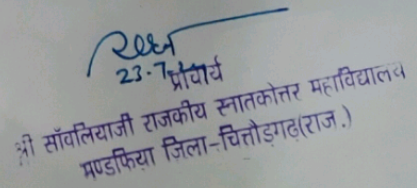 23.7
प्राचार्य
श्री साँवलियाजी राजकीय स्नातकोत्तर महाविद्यालय
मण्डफिया जिला-चित्तौड़गढ़(राज.)